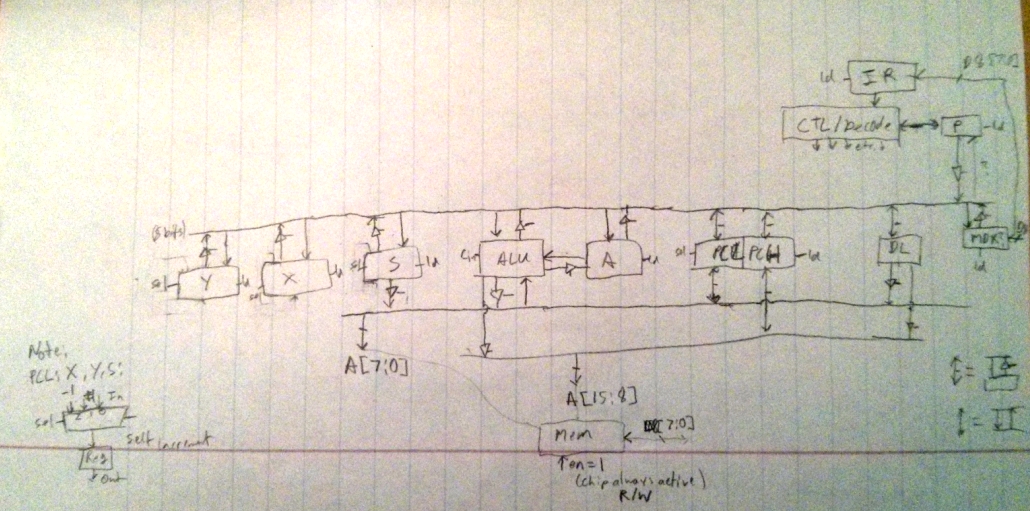 ld
IR
CTL/Decode
etc.
P
ld
?
(8 bits)
sel
Y
ld
sel
X
ld
sel
S
ld
Cin
ALU
A
ld
sel
PCL
PCH
ld
DL
MDR
ld
A[7:0]
A[15:8]
Mem
[7:0]
en=1
(chip always active)
R/W
Note:
PCL, X, Y, S:
-1
In
sel
self increment
Reg
out
=
=